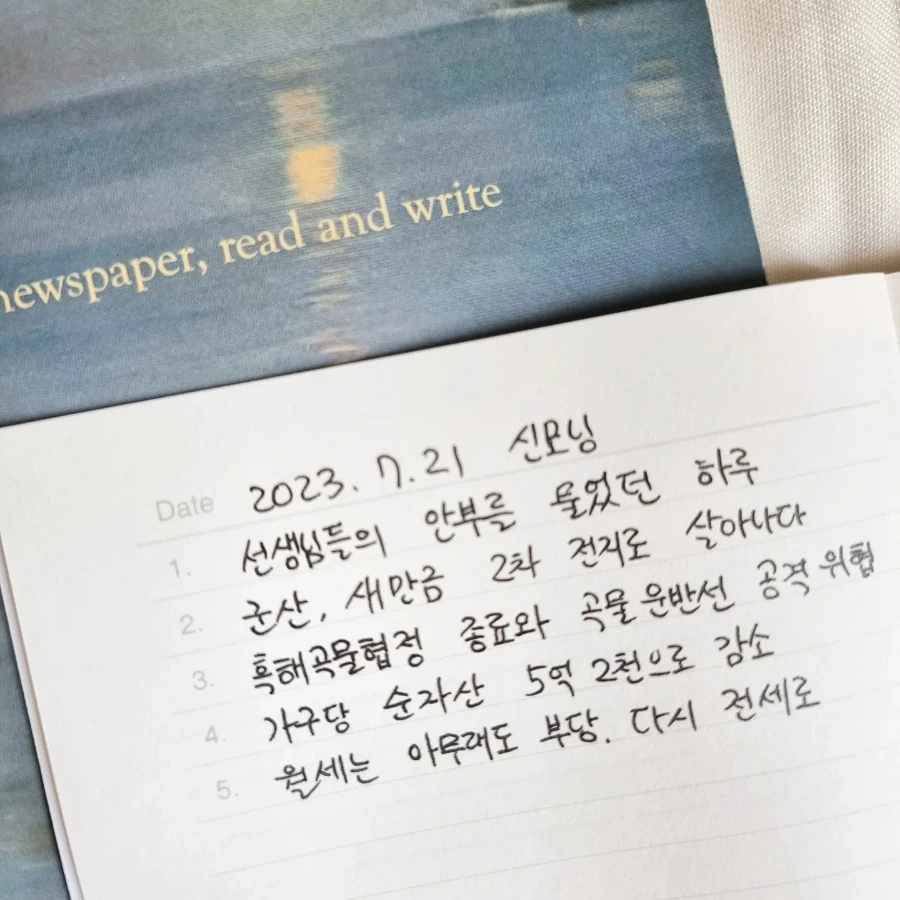 newspaper, read and write
Date 2023. 7. 21 신모닝
1. 선생님들의 안부를 물었던 하루
2. 군산, 새만금 2차 전지로 살아나다
3. 흑해곡물협정 종료와 곡물운반선 공격 위협
4. 가구당 순자산 5억 2천으로 감소
5. 월세는 아무래도 부담. 다시 전세로